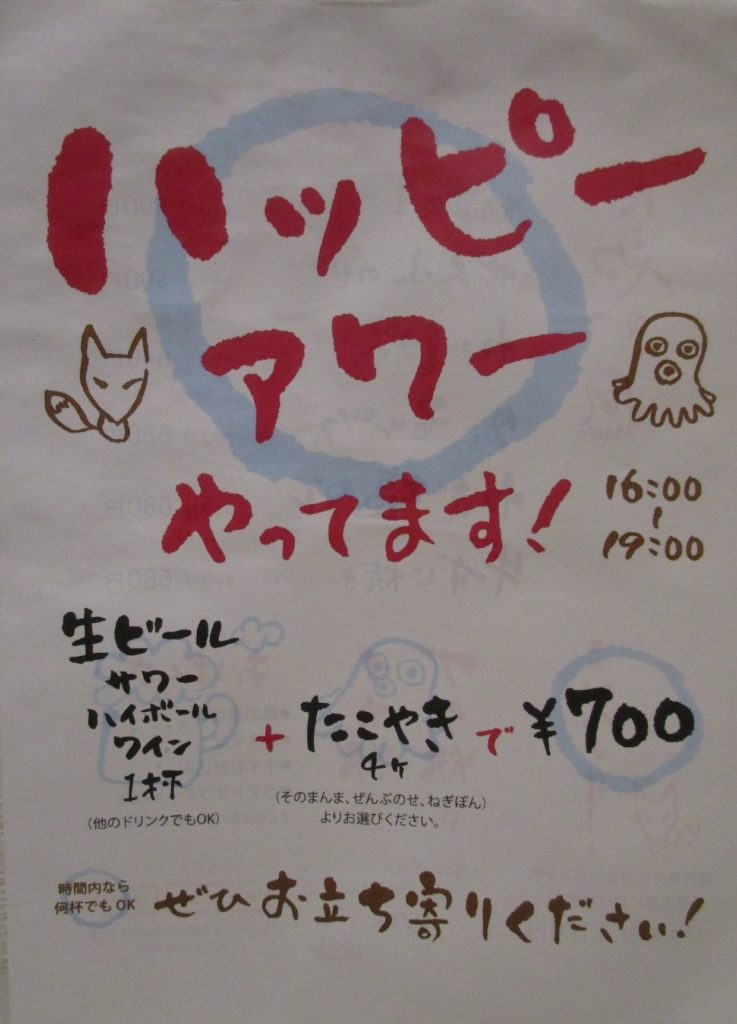 ハッピー
アワー
やってます!
16:00
~
19:00
生ビール
サワー
ハイボール
ワイン
1杯
(他のドリンクでもOK)
+
たこやき
4ヶ
(そのまんま、ぜんぶのせ、ねぎぽん)
よりお選びください。
で
¥700
時間内なら
何杯でもOK
ぜひお立ち寄りください!